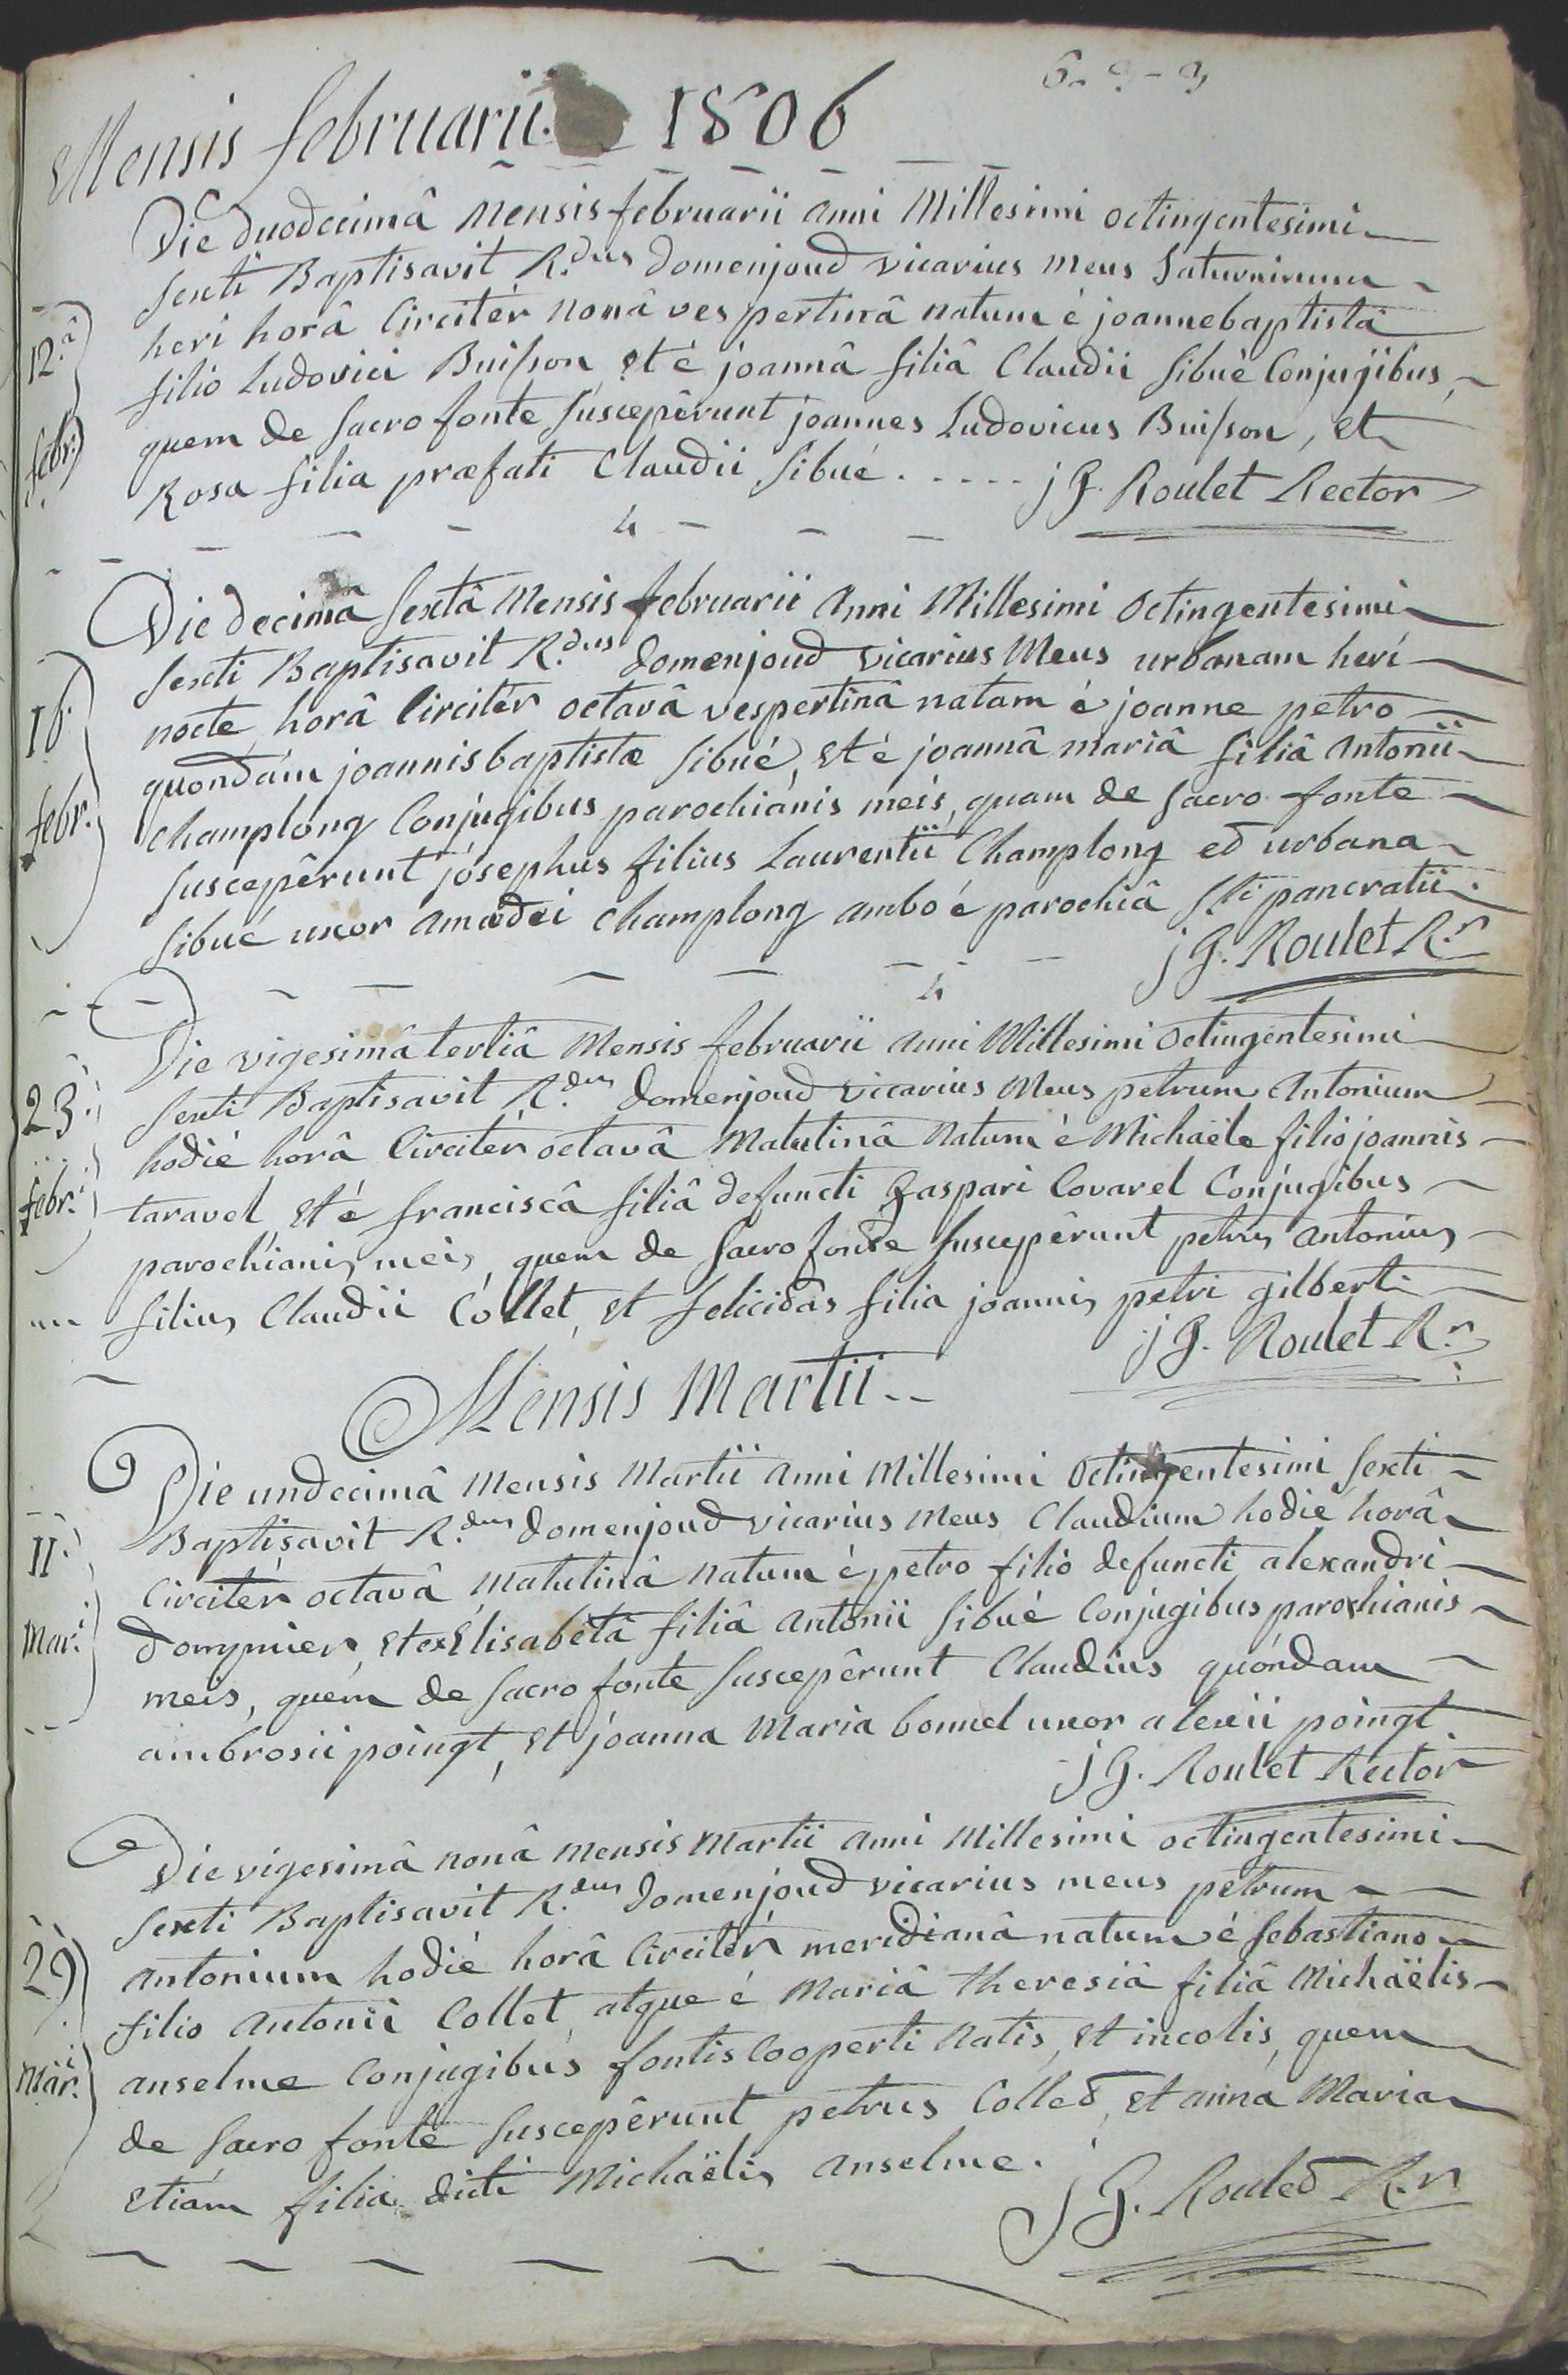 Mensis februarii. 1806
Die duodecimâ mensis februarii anni Millesimi octingentesimi
sexti Baptisavit R.dus domenjoud vicarius meus Saturninum
heri horâ Circitèr nonâ vespertinâ natum è joannebaptistâ
filio Ludovici Buisson et è joannâ filiâ Claudii Sibué Conjugibus,
quem de sacro fonte suscepêrunt joannes Ludovicus Buisson, et
Rosa filia præfati Claudii Sibué. . . . . j G. Roulet Rector
12.a
febr.
Die decimâ Sextâ Mensis februarii Anni Millesimi Octingentesimi
Sexti Baptisavit R.dus domenjoud vicarius Meus urbanam heri
nocte horâ Circitèr octavâ vespertinâ natam è joanne petro
quondàm joannisbaptistæ Sibué, et è joannâ mariâ filiâ Antonii
Champlong Conjugibus parochiànis meis, quam de sacro fonte
suscepêrunt josephus filius Laurentii Champlong ed urbana
Sibué uxor amædei Champlong ambo é parochiâ Sti pancratii.
j G. Roulet R.r
16.
febr.
Die vigesimâ tertiâ Mensis februarii anni Millesimi Octingentesimi
Sexti Baptisavit R.dus Domenjoud vicarius Meus petrum Antonium
hodié horâ Circitér octavâ Matutinâ natum é Michaële filio joannis
taravel et é franciscâ filiâ defuncti Gaspari Covarel Conjugibus
parochianis meis, quem de Sacro fonte Suscepêrunt petrus antonius
filius Claudii Collet, et felicidas filia joannis petri gilbert
j G. Roulet R.r
23.
febr.i
Mensis Martii
Die undecimâ Mensis Martii anni Millesimi Octingentesimi Sexti
Baptisavit R.dus Domenjoud vicarius Meus Claudium hodiè horâ
Circitér octavâ Matutinâ natum é petro filio defuncti alexandri
et ex Elisabetâ filiâ Antonii Sibué Conjugibus parochianis
meis, quém de Sacro fonte Suscepêrunt Claudius quóndam
ambrosii poingt, et joanna Maria bonnel uxor alexii poingt.
j G. Roulet Rector
11.
Mar.i
Die vigesimâ nonâ Mensis Martii anni Millesimi octingentesimi
Sexti Baptisavit R.dus Domenjoud vicarius meus petrum
antonium hodié horâ Circitér meridianâ natum é Sebastiano
filio Antonii Collet, atque é Mariâ theresiâ filiâ Michaëlis
anselme Conjugibus fontis Cooperti natis, et incolis, quem
de Sacro fonte Suscepêrunt petrus Colled, et anna Maria
etiám filia dicti Michaëlis anselme.
j G. Rouled R.r
29
Mar.i